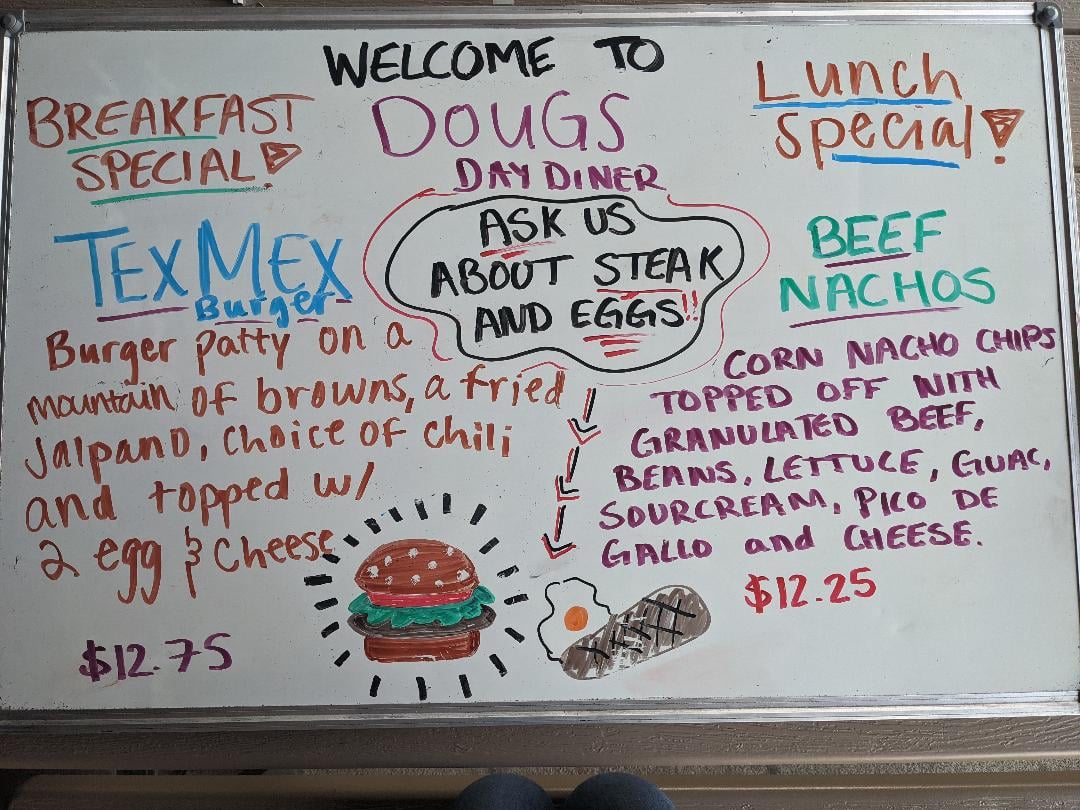 WELCOME TO
DOUGS
DAY DINER
BREAKFAST
SPECIAL!
TEX MEX
Burger
Burger patty on a
mountain of browns, a fried
Jalpano, choice of chili
and topped w/
2 egg & Cheese
$12.75
ASK US
ABOUT STEAK
AND EGGS!!
Lunch
special!
BEEF
NACHOS
CORN NACHO CHIPS
TOPPED OFF WITH
GRANULATED BEEF,
BEANS, LETTUCE, GUAC,
SOURCREAM, PICO DE
GALLO and CHEESE.
$12.25